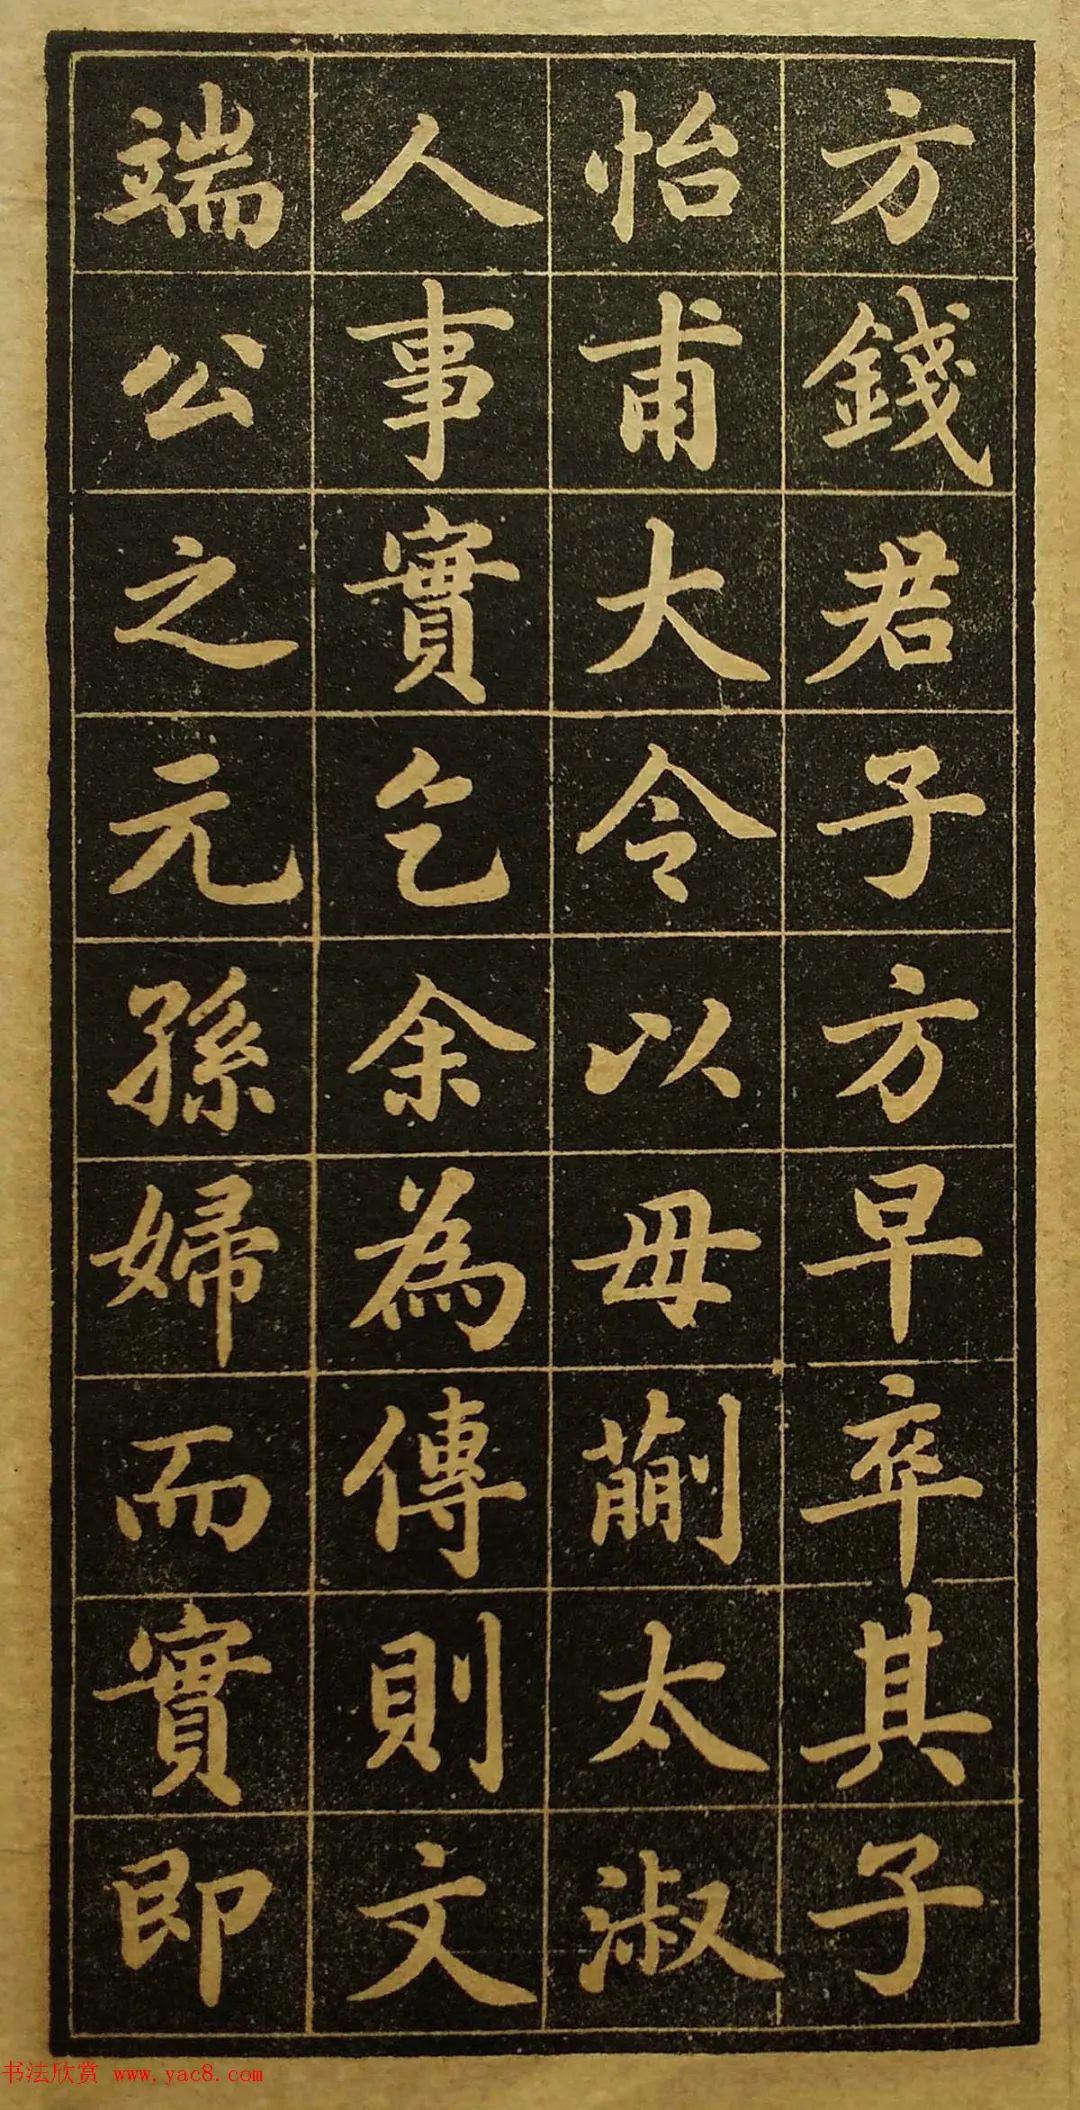 方錢君子方早卒其子
怡甫大令以毋蒯太淑
人事實乞余為傳則文
端公之元孫婦而實即
书法欣赏 www.yac8.com